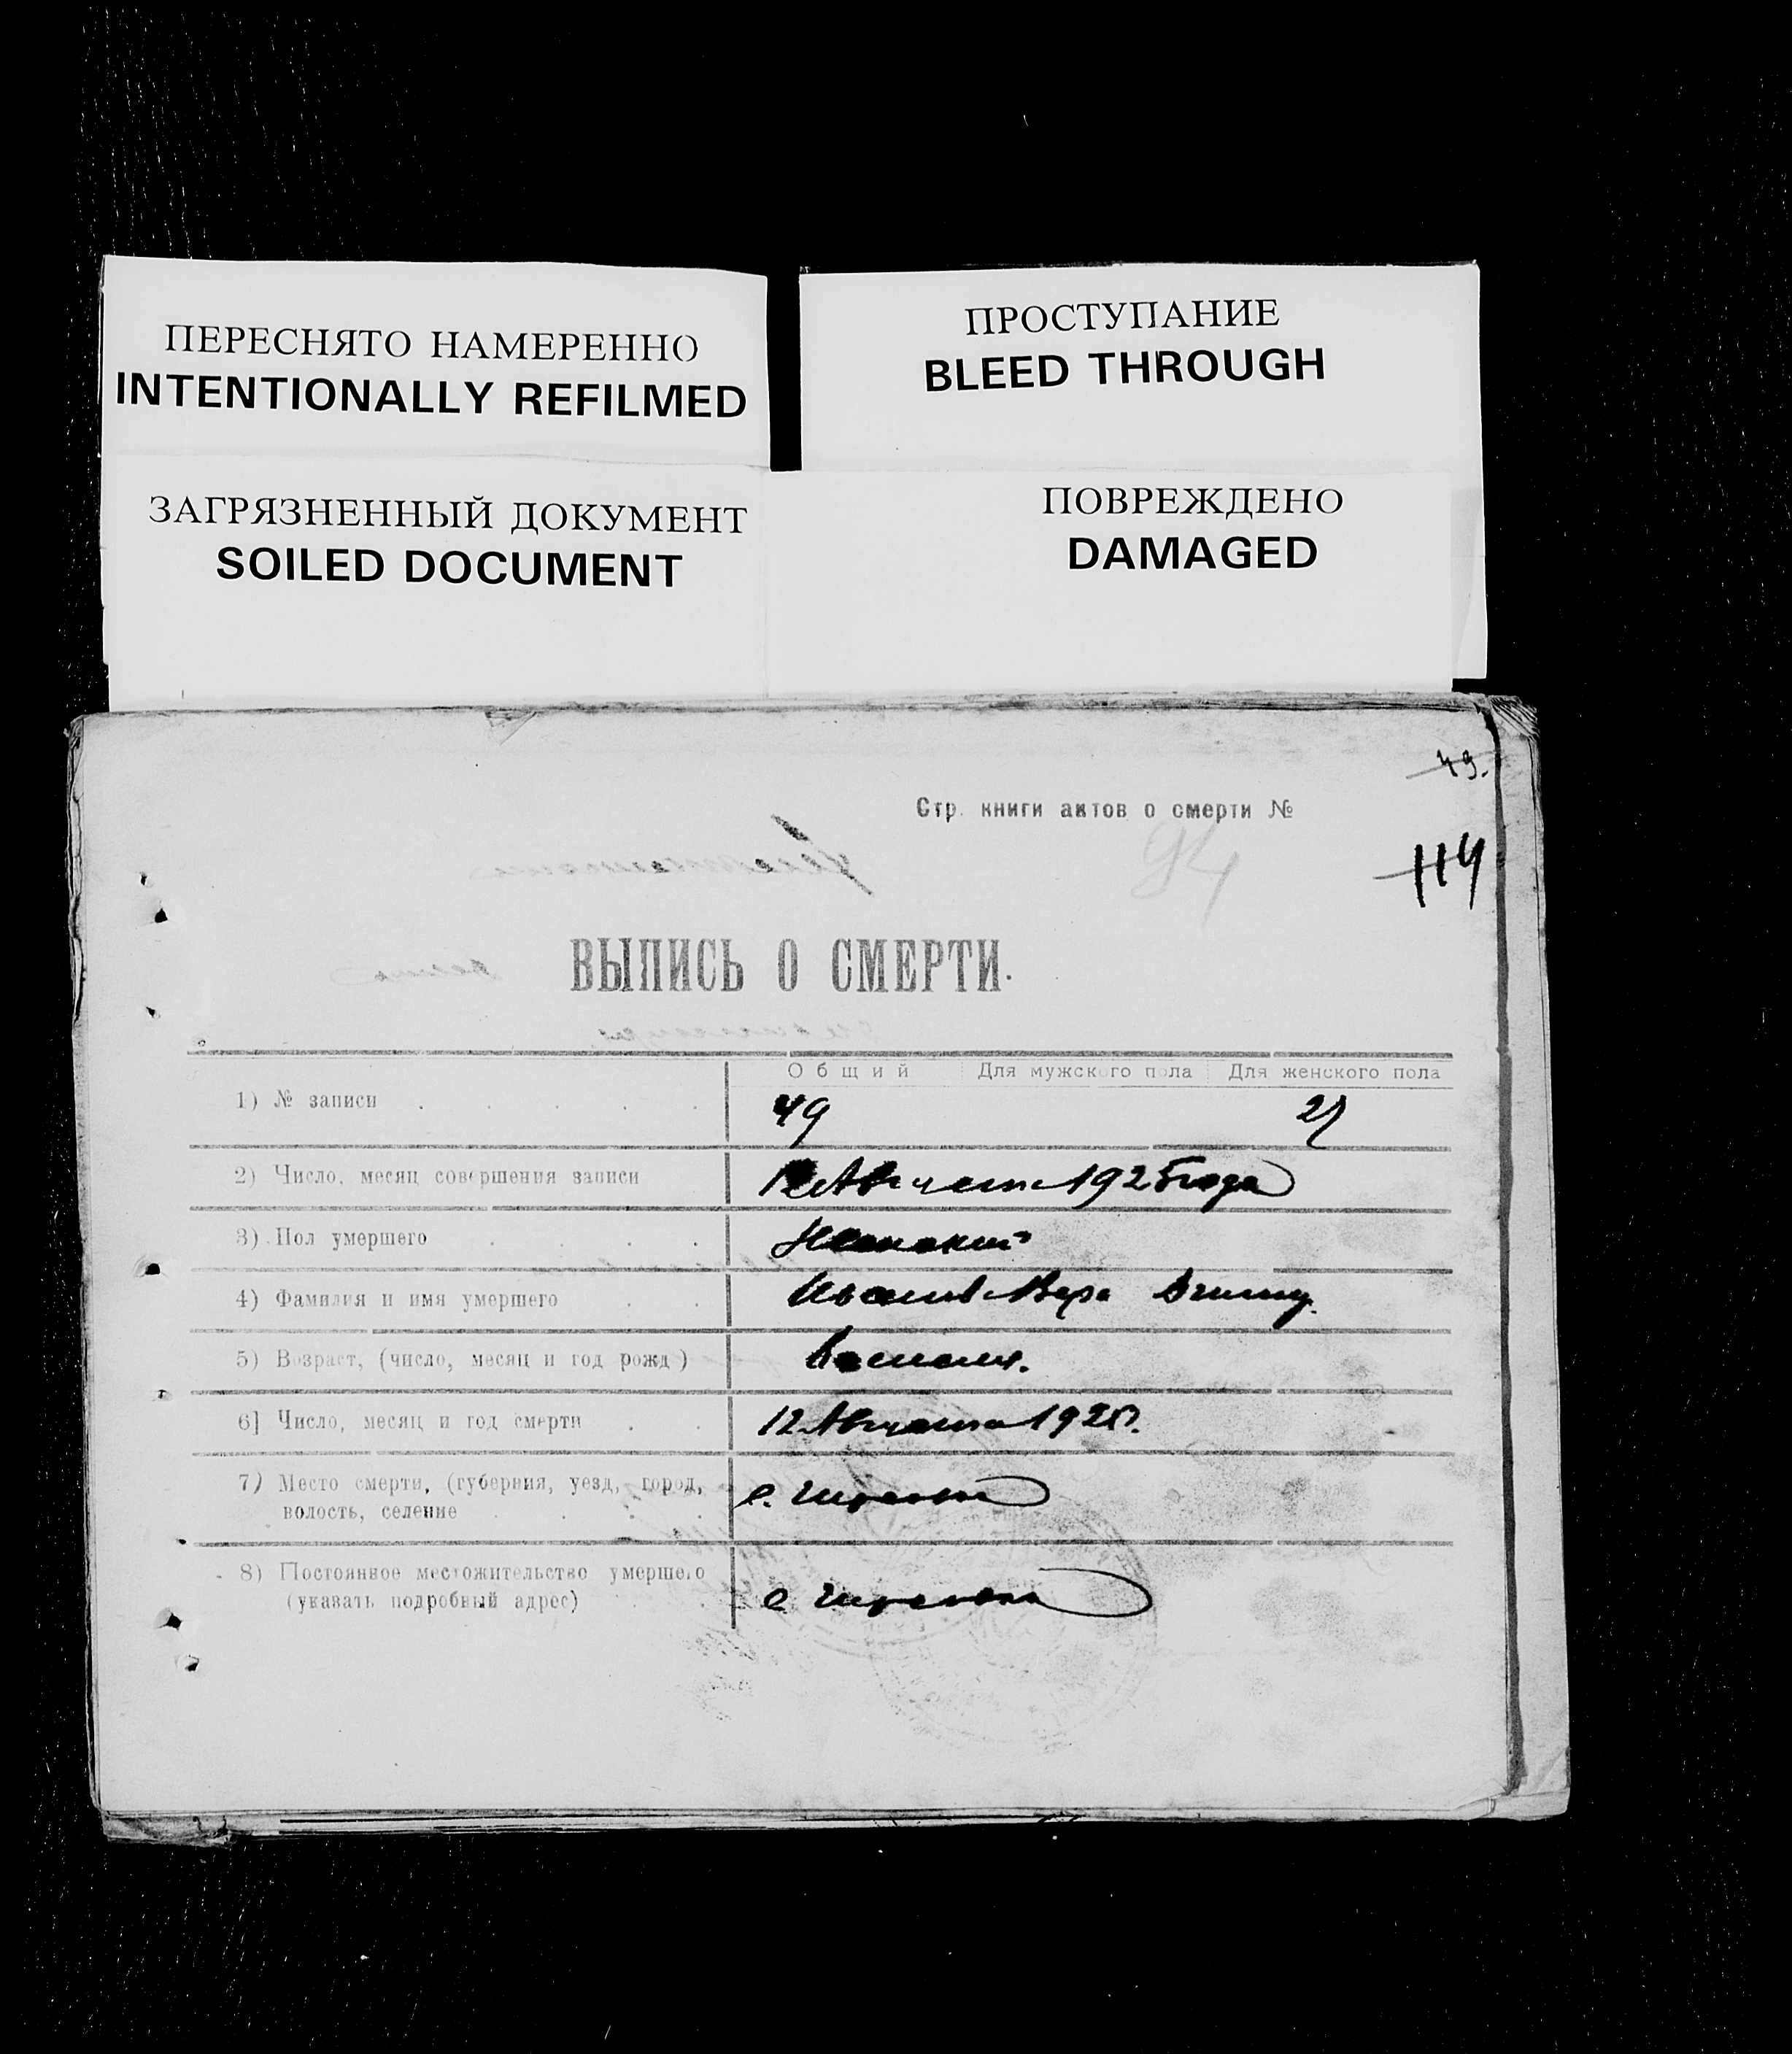 ПЕРЕСНЯТО НАМЕРЕННО
INTENTIONALLY REFILMED
ПРОСТУПАНИЕ
BLEED THROUGH
ЗАГРЯЗНЕННЫЙ ДОКУМЕНТ
SOILED DOCUMENT
ПОВРЕЖДЕНО
DAMAGED
49.
Стр. книги актов о смерти №
94
114
ВЫПИСЬ О СМЕРТИ.
Общий Для мужского пола Для женского пола
1) № записи . . . . . 49
2) Число, месяц совершения записи Августа 1925 года
3) Пол умершего . . . . Женский
4) Фамилия и имя умершего . . Вера
5) Возраст, (число, месяц и год рожд)
6] Число, месяц и год смерти . . 12 Августа 1925.
7) Место смерти, (губерния, уезд, город,
волость, селение . . . . с.
8) Постоянное местожительство умершего
(указать подробный адрес) . . с